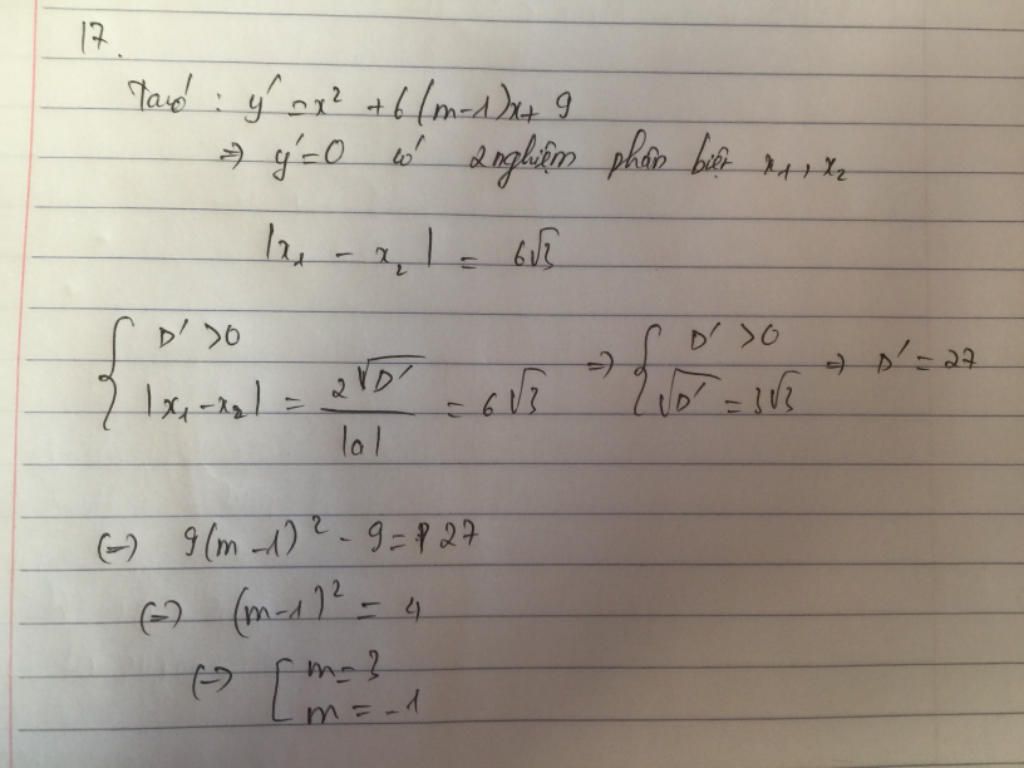 17.
Ta có : y' = x² + 6(m-1)x + 9
⇒ y' = 0 có 2 nghiệm phân biệt x₁, x₂
|x₁ - x₂| = 6√3
{ D' > 0 ⇒ { D' > 0 ⇒ D' = 27
|x₁ - x₂| = 2√D' / |a| = 6√3 √D' = 3√3
(=) 9(m-1)² - 9 = 27
(=) (m-1)² = 4
(=) [ m = 3
m = -1